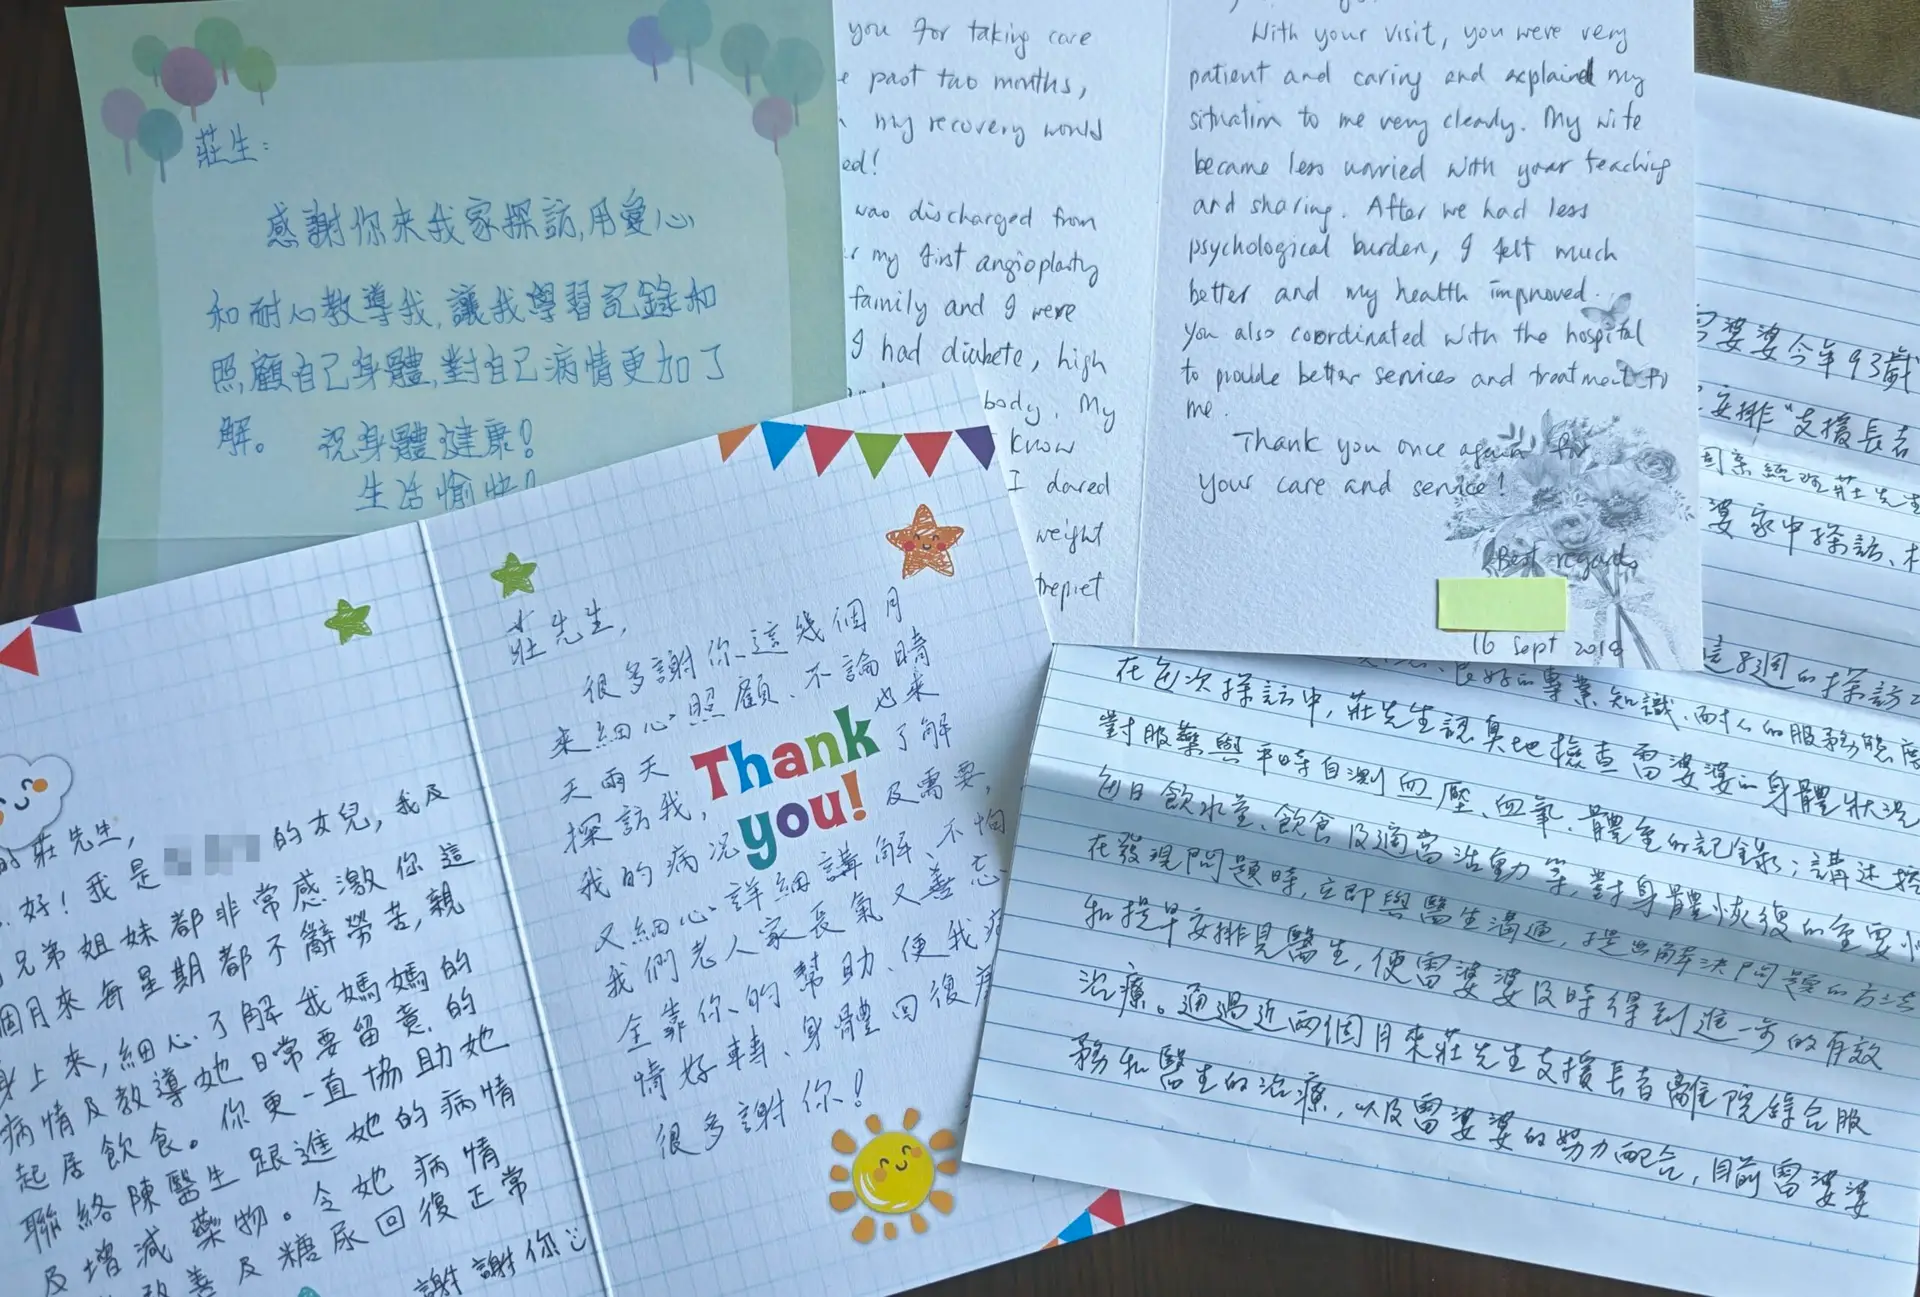 莊生:
感謝你來我家探訪,用愛心
和耐心教導我,讓我學習記錄和
照顧自己身體,對自己病情更加了
解。 祝身體健康!
生活愉快!
you for taking care
past two months,
my recovery would
ed!
was discharged from
my first angioplasty
family and I were
I had diabete, high
body. My
know
I dared
weight
With your visit, you were very
patient and caring and explained my
situation to me very clearly. My wife
became less worried with your teaching
and sharing. After we had less
psychological burden, I felt much
better and my health improved.
You also coordinated with the hospital
to provide better services and treatment to
me.
Thank you once again for
your care and service!
Best regards
16 Sept 2018
婆婆今年93歲
安排"支援長者
莊先生
婆家中探訪、
這8週的探訪
良好的專業知識、耐心的服務態度
在每次探訪中,莊先生認真地檢查雷婆婆的身體狀況
對服藥與平時自測血壓、血氧、體重的記錄;講述
每日飲水量、飲食及適當活動等,對身體恢復的重要
在發現問題時,立即與醫生溝通,提出解決問題的方法
和提早安排見醫生,使雷婆婆及時得到進一步的有效
治療。通過近兩個月來莊先生支援長者離院綜合服
務和醫生的治療,以及雷婆婆的努力配合,目前雷婆婆
的莊先生,
好!我是 的女兒,我及
兄弟姐妹都非常感激你這
個月來每星期都不辭勞苦,親
身上來,細心了解我媽媽的
病情及教導她日常要留意的
起居飲食。你更一直協助她
聯絡陳醫生跟進她的病情
及增減藥物。令她病情
改善及糖尿回復正常
謝謝你
莊先生,
很多謝你這幾個月
來細心照顧、不論晴
天雨天也來
探訪我,了解
我的病況及需要,
又細心詳細講解、不怕
我們老人家長氣又善忘
全靠你的幫助、使我病
情好轉、身體回復
很多謝你!
Thank
you!